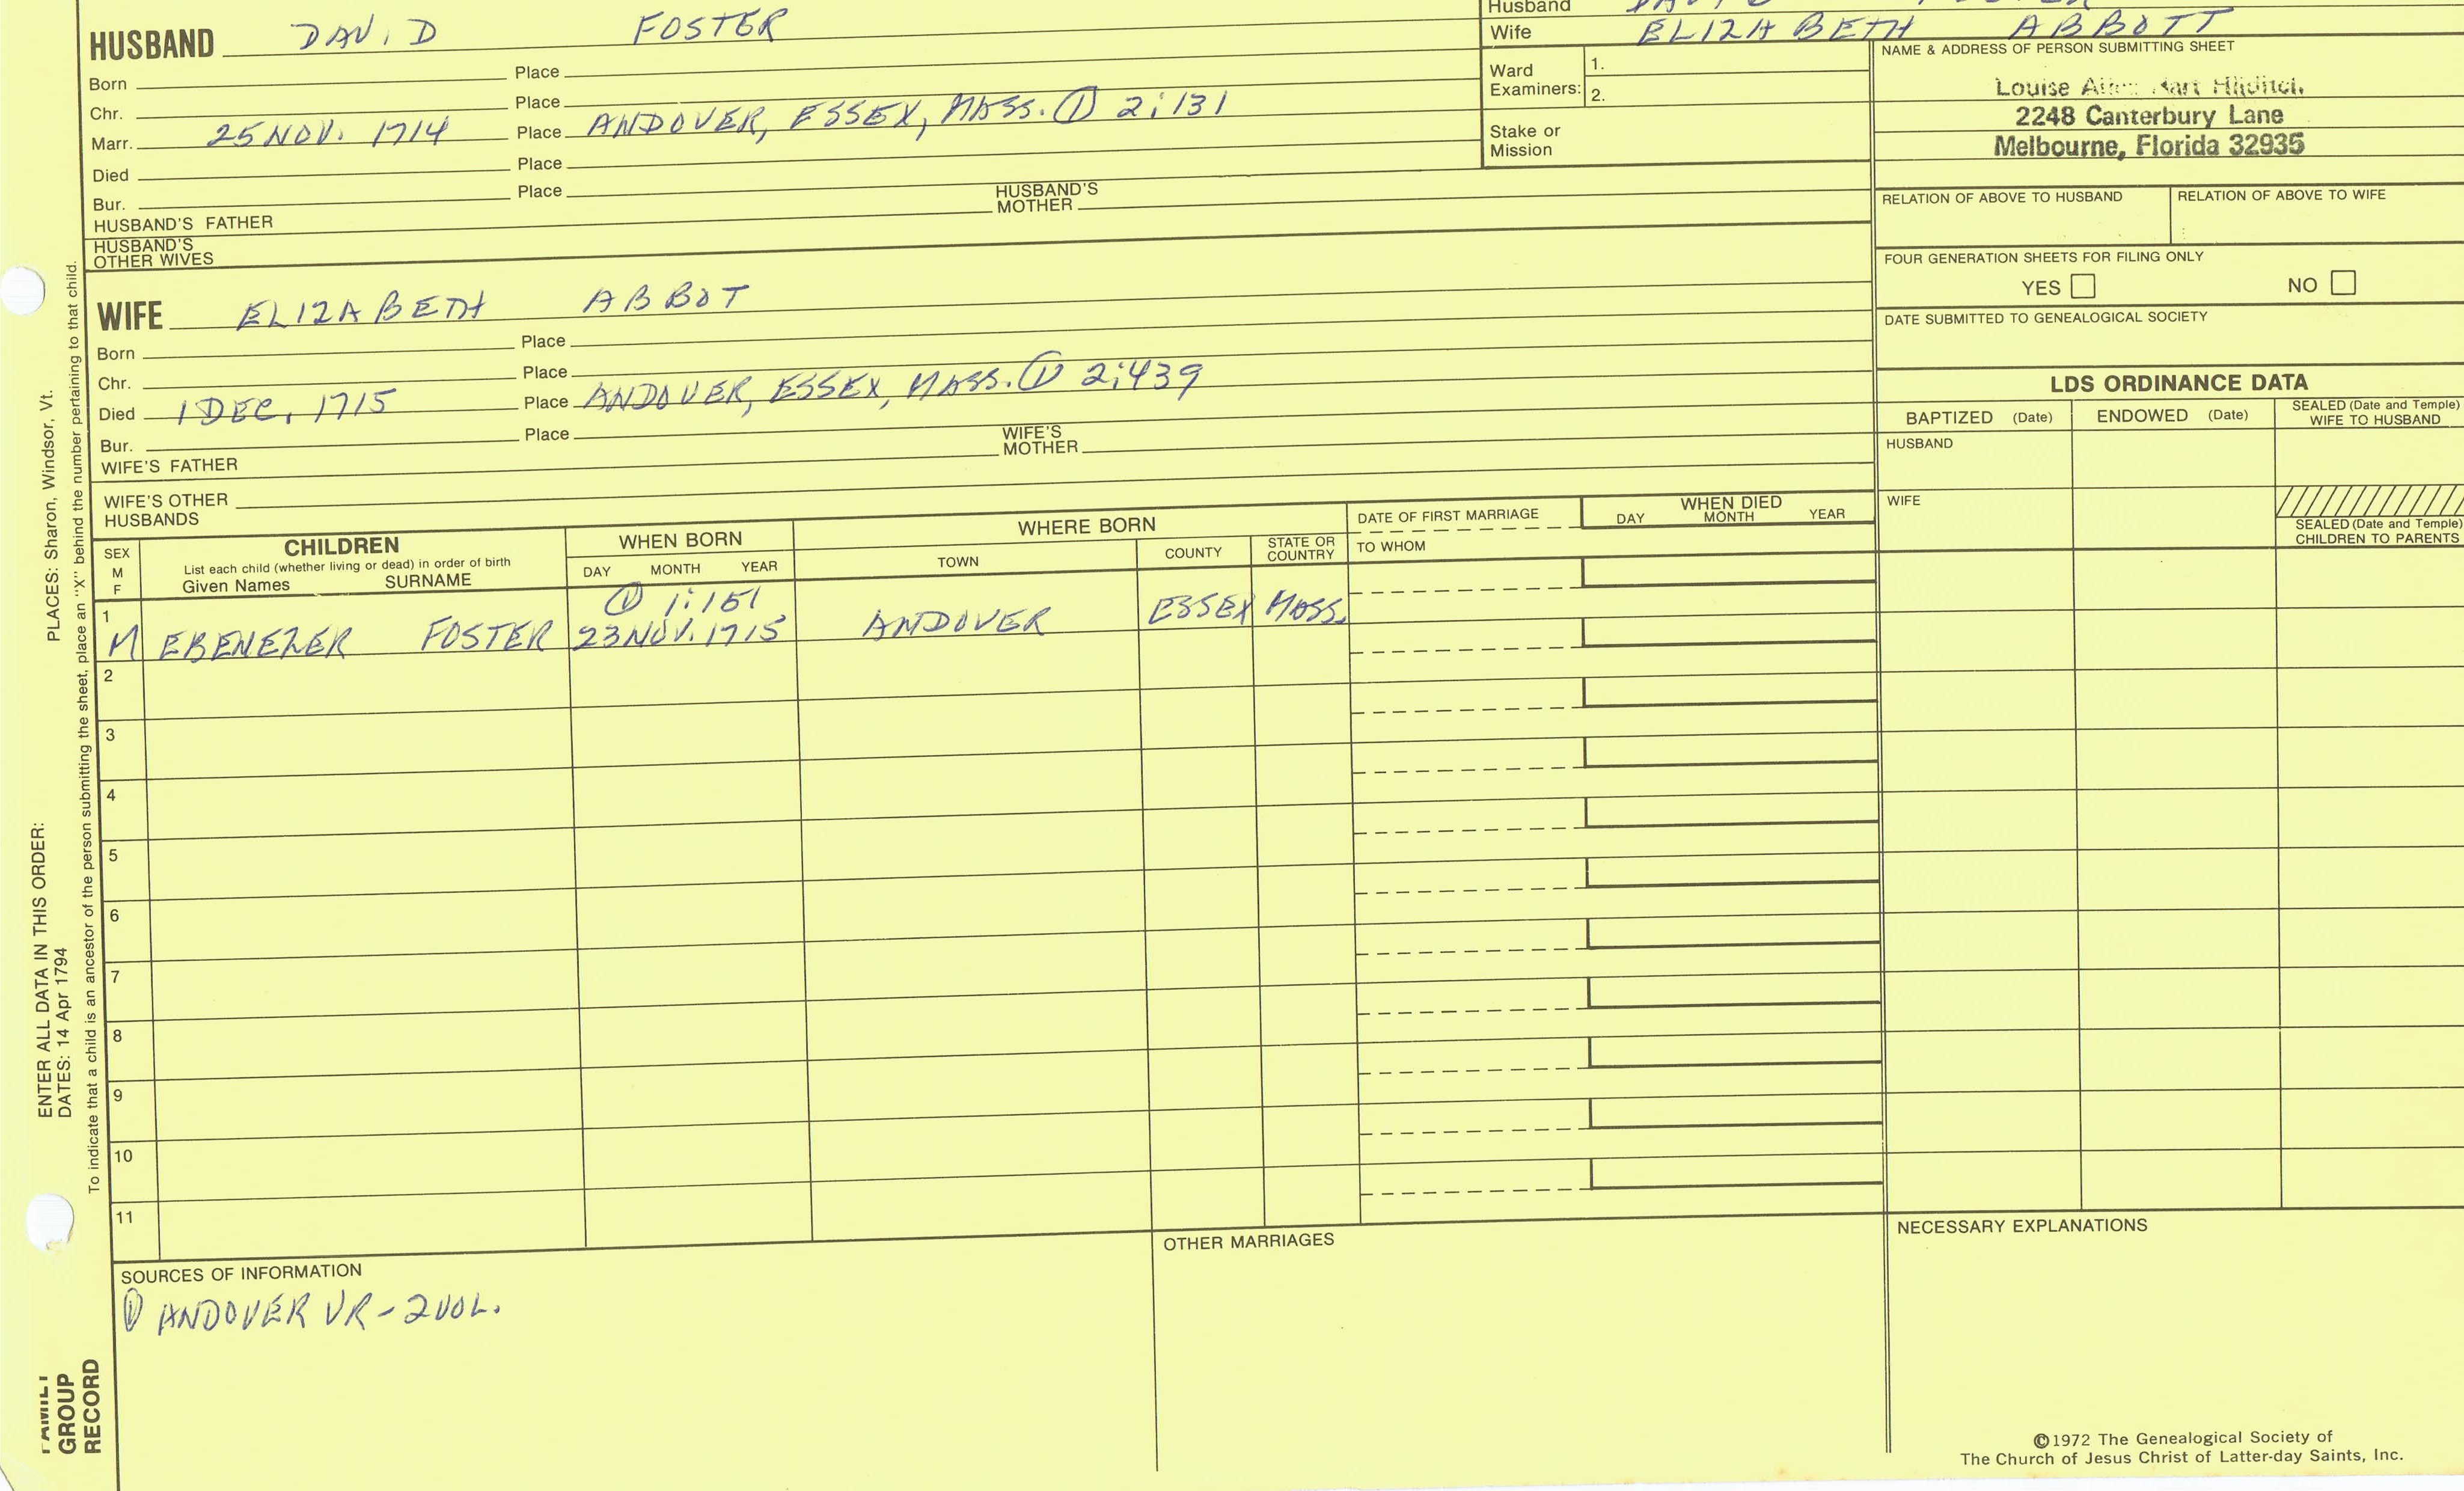 HUSBAND DAVID FOSTER
Born Place
Chr. Place
Marr. 25 NOV. 1714 Place ANDOVER, ESSEX, MASS. ① 2:131
Died Place
Bur. Place
HUSBAND'S FATHER HUSBAND'S MOTHER
HUSBAND'S OTHER WIVES
Husband
Wife ELIZABETH ABBOTT
Ward Examiners: 1.
2.
Stake or Mission
NAME & ADDRESS OF PERSON SUBMITTING SHEET
Louise
2248 Canterbury Lane
Melbourne, Florida 32935
RELATION OF ABOVE TO HUSBAND RELATION OF ABOVE TO WIFE
FOUR GENERATION SHEETS FOR FILING ONLY
YES NO
DATE SUBMITTED TO GENEALOGICAL SOCIETY
WIFE ELIZABETH ABBOT
Born Place
Chr. Place
Died 1 DEC. 1715 Place ANDOVER, ESSEX, MASS. ① 2:439
Bur. Place
WIFE'S FATHER WIFE'S MOTHER
WIFE'S OTHER HUSBANDS
LDS ORDINANCE DATA
BAPTIZED (Date) ENDOWED (Date) SEALED (Date and Temple) WIFE TO HUSBAND
HUSBAND
WIFE
SEALED (Date and Temple) CHILDREN TO PARENTS
SEX M F
CHILDREN
List each child (whether living or dead) in order of birth
Given Names SURNAME
WHEN BORN
DAY MONTH YEAR
WHERE BORN
TOWN COUNTY STATE OR COUNTRY
DATE OF FIRST MARRIAGE
TO WHOM
WHEN DIED
DAY MONTH YEAR
① 1:151
1 M EBENEZER FOSTER 23 NOV. 1715 ANDOVER ESSEX MASS.
2
3
4
5
6
7
8
9
10
11
SOURCES OF INFORMATION
① ANDOVER VR - 2 VOL.
OTHER MARRIAGES
NECESSARY EXPLANATIONS
©1972 The Genealogical Society of
The Church of Jesus Christ of Latter-day Saints, Inc.
ENTER ALL DATA IN THIS ORDER:
DATES: 14 Apr 1794
PLACES: Sharon, Windsor, Vt.
To indicate that a child is an ancestor of the person submitting the sheet, place an "X" behind the number pertaining to that child.
FAMILY
GROUP
RECORD